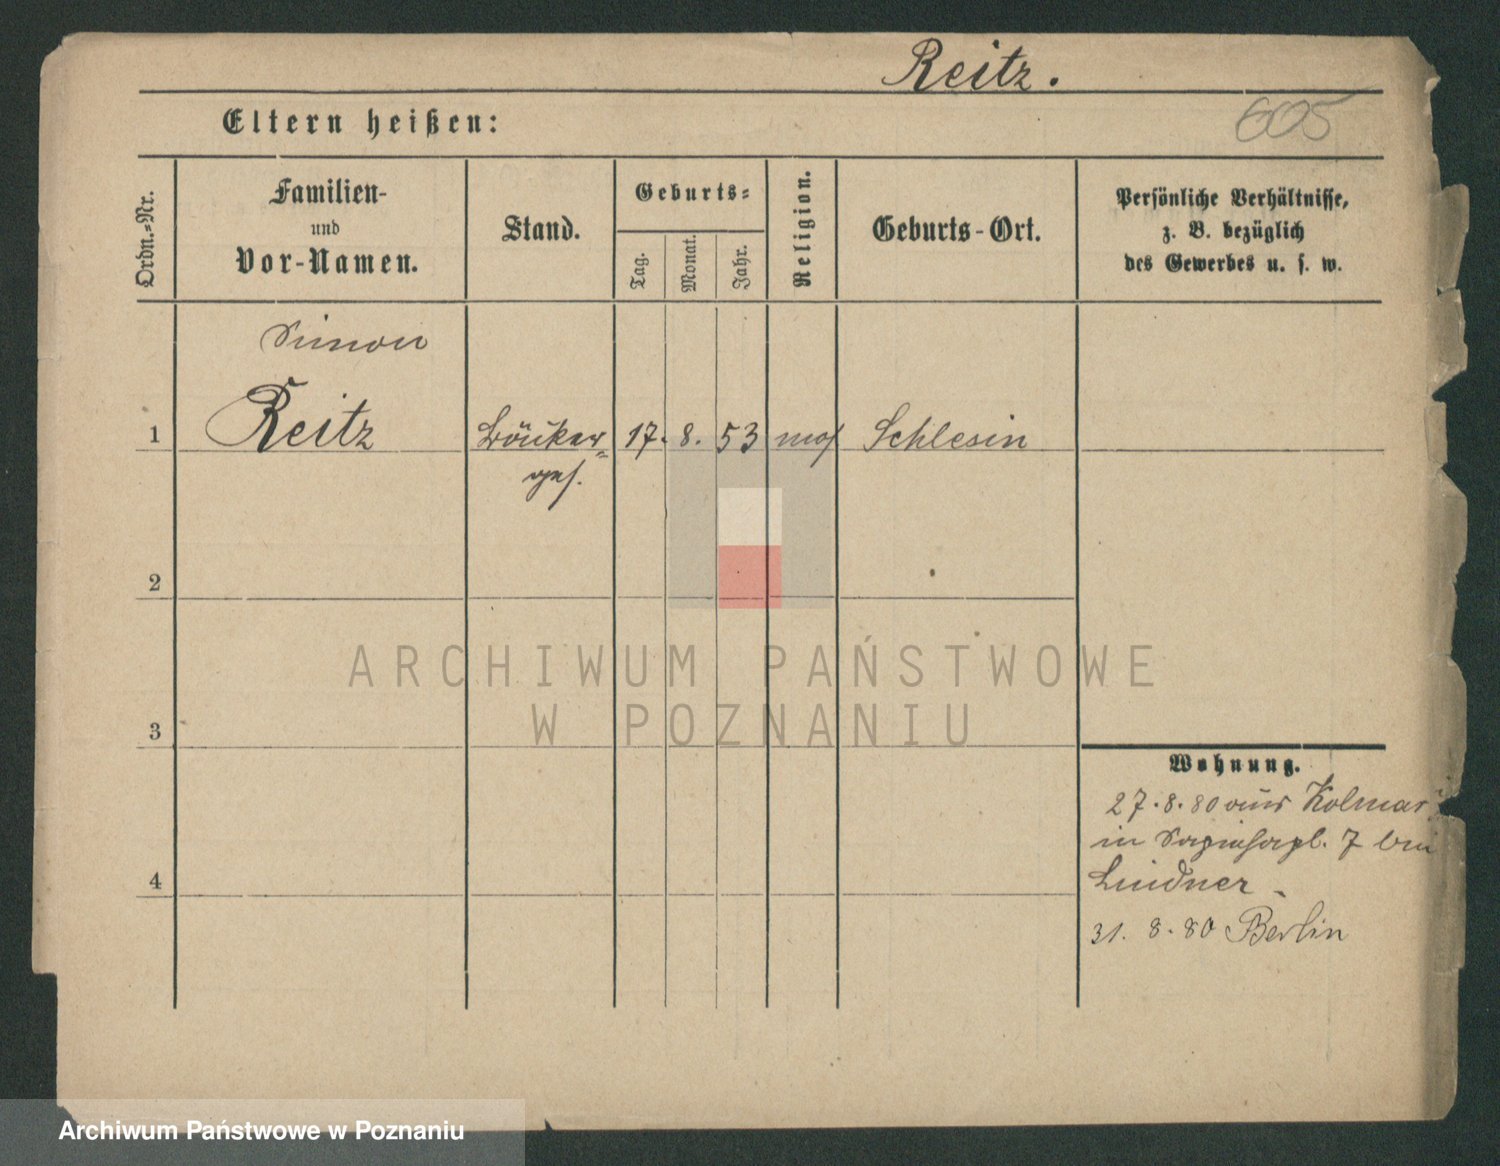 Reitz.
605
Eltern heißen:
Ordn.-Nr.
Familien-
und
Vor-Namen.
Stand.
Geburts-
Tag.
Monat.
Jahr.
Religion.
Geburts-Ort.
Persönliche Verhältnisse,
z. B. bezüglich
des Gewerbes u. s. w.
Simon
1 Reitz 17. 8. 53 mos Schlesin
ges.
2
3
4
Wohnung.
27.8.80 aus Kolmar
in 7 bei
Lindner
31. 8. 80 Berlin
ARCHIWUM PAŃSTWOWE
W POZNANIU
Archiwum Państwowe w Poznaniu